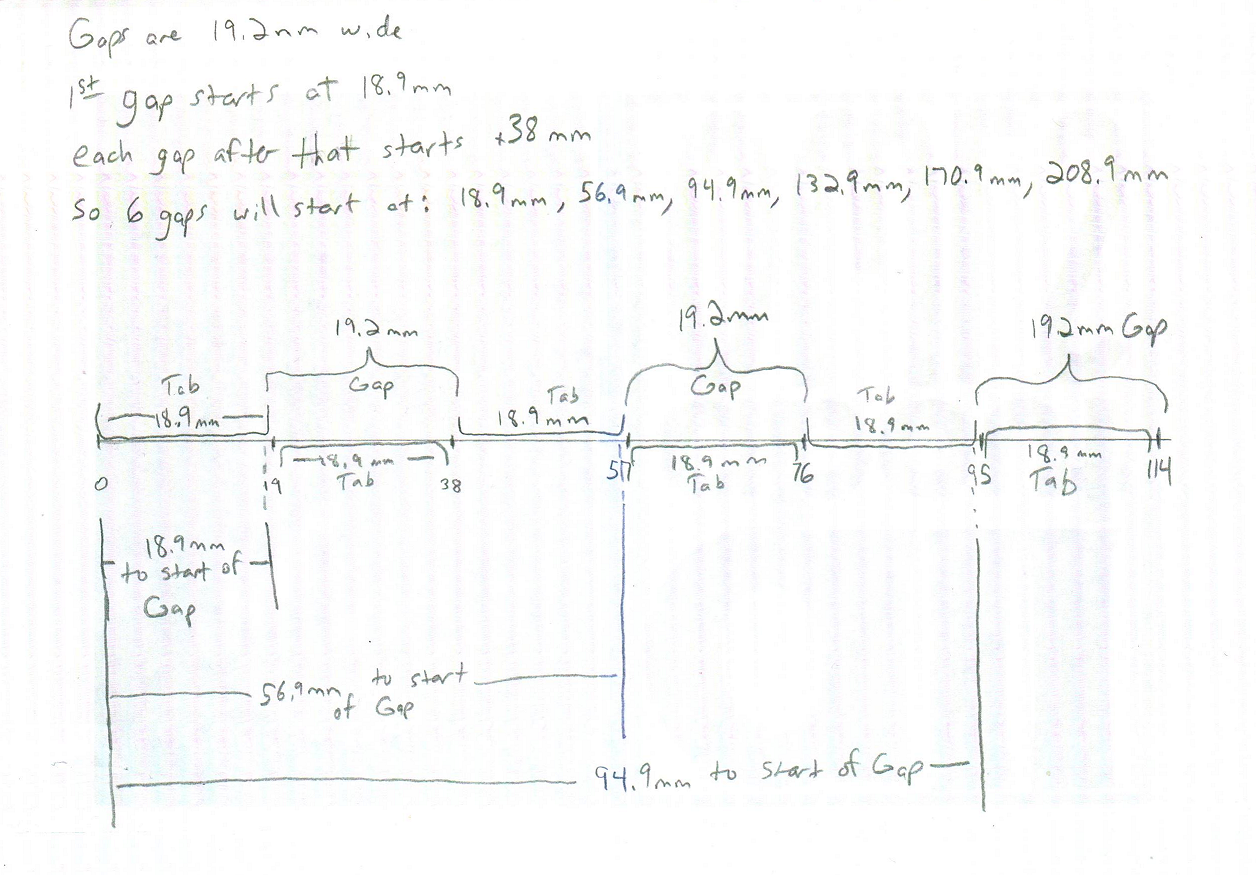 Gaps are 19.2mm wide
1st gap starts at 18.9mm
each gap after that starts +38 mm
So 6 gaps will start at: 18.9mm, 56.9mm, 94.9mm, 132.9mm, 170.9mm, 208.9mm
19.2mm
19.2mm
19.2mm Gap
Tab
Gap
Tab
Gap
Tab
18.9mm
18.9mm
18.9mm
18.9 mm
Tab
18.9 mm
Tab
18.9 mm
Tab
0
19
38
57
76
95
114
18.9mm
to start of
Gap
56.9mm to start
of Gap
94.9mm to start of Gap